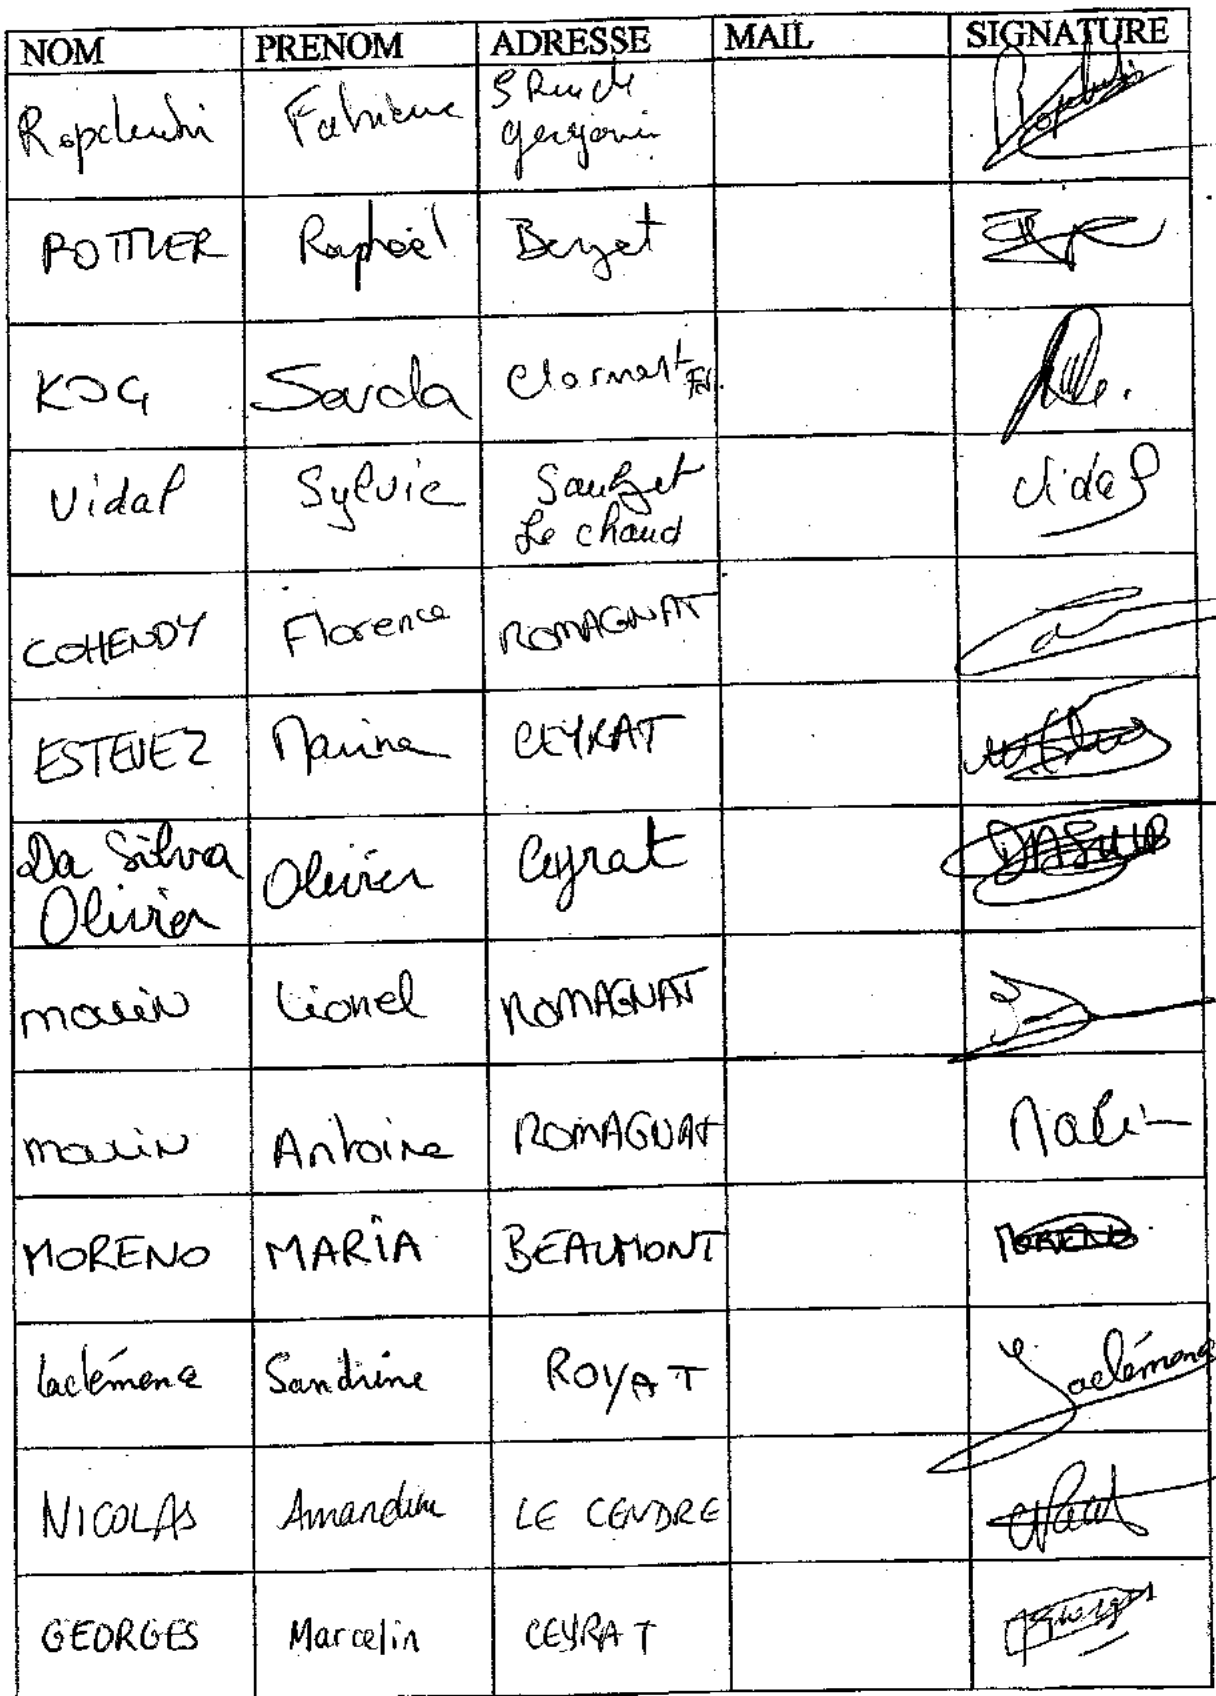 NOM PRENOM ADRESSE MAIL SIGNATURE
Fabienne
POTTIER Raphaël Berzet
KOG Saida Clermont Fd
Vidal Sylvie Saulzet Vidal
Le chaud
COHENDY Florence ROMAGNAT
ESTEVEZ Marina CEYRAT
Da Silva Olivier Ceyrat DASILVA
Olivier
marin Lionel ROMAGNAT
marin Antoine ROMAGNAT Marin
MORENO MARIA BEAUMONT MORENO
laclémence Sandrine ROYAT Laclémence
NICOLAS Amandine LE CENDRE
GEORGES Marcelin CEYRAT Georges